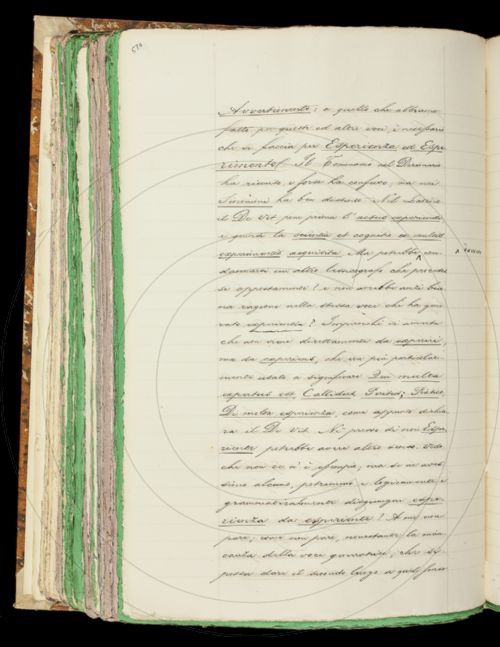 570
Avvertimento; e quello che abbiamo
fatto per questi ed altre voci, è necessario
che si faccia per Esperienza ed Espe-
rimento. Il Tommaseo nel Dizionario
ha riunito, e forse ha confuso, ma nei
Sinonimi ha ben distinto. Nel Latino
il De Vit pone prima l'actus experiendi
e quindi la scientia et cognitio ex multis
experimentis acquisita. Ma potrebbe con-
dannarsi un altro lessicografo che procedes-
se oppostamente? e non avrebbe anzi buo-
na ragione nella stessa voce che ha gene-
rato experientia? Imperocchè si avverta
che non viene direttamente da experiri,
ma da experiens, che era più particolar-
mente usato a significare Qui multa
expertus est Callidus, Peritus, Pratico,
Di molta esperienza, come appunto dichia-
ra il De Vit. Nè presso di noi Espe-
riente potrebbe avere altro senso. Vedo
che non ce n'è esempio; ma se ne aves-
simo alcuno, potremmo e logicamente e
grammaticalmente disgiungere espe-
rienza da esperiente? A me non
pare, come non pare, nonostante la man-
canza della voce generatrice, che si
possa dare il secondo luogo a quel senso